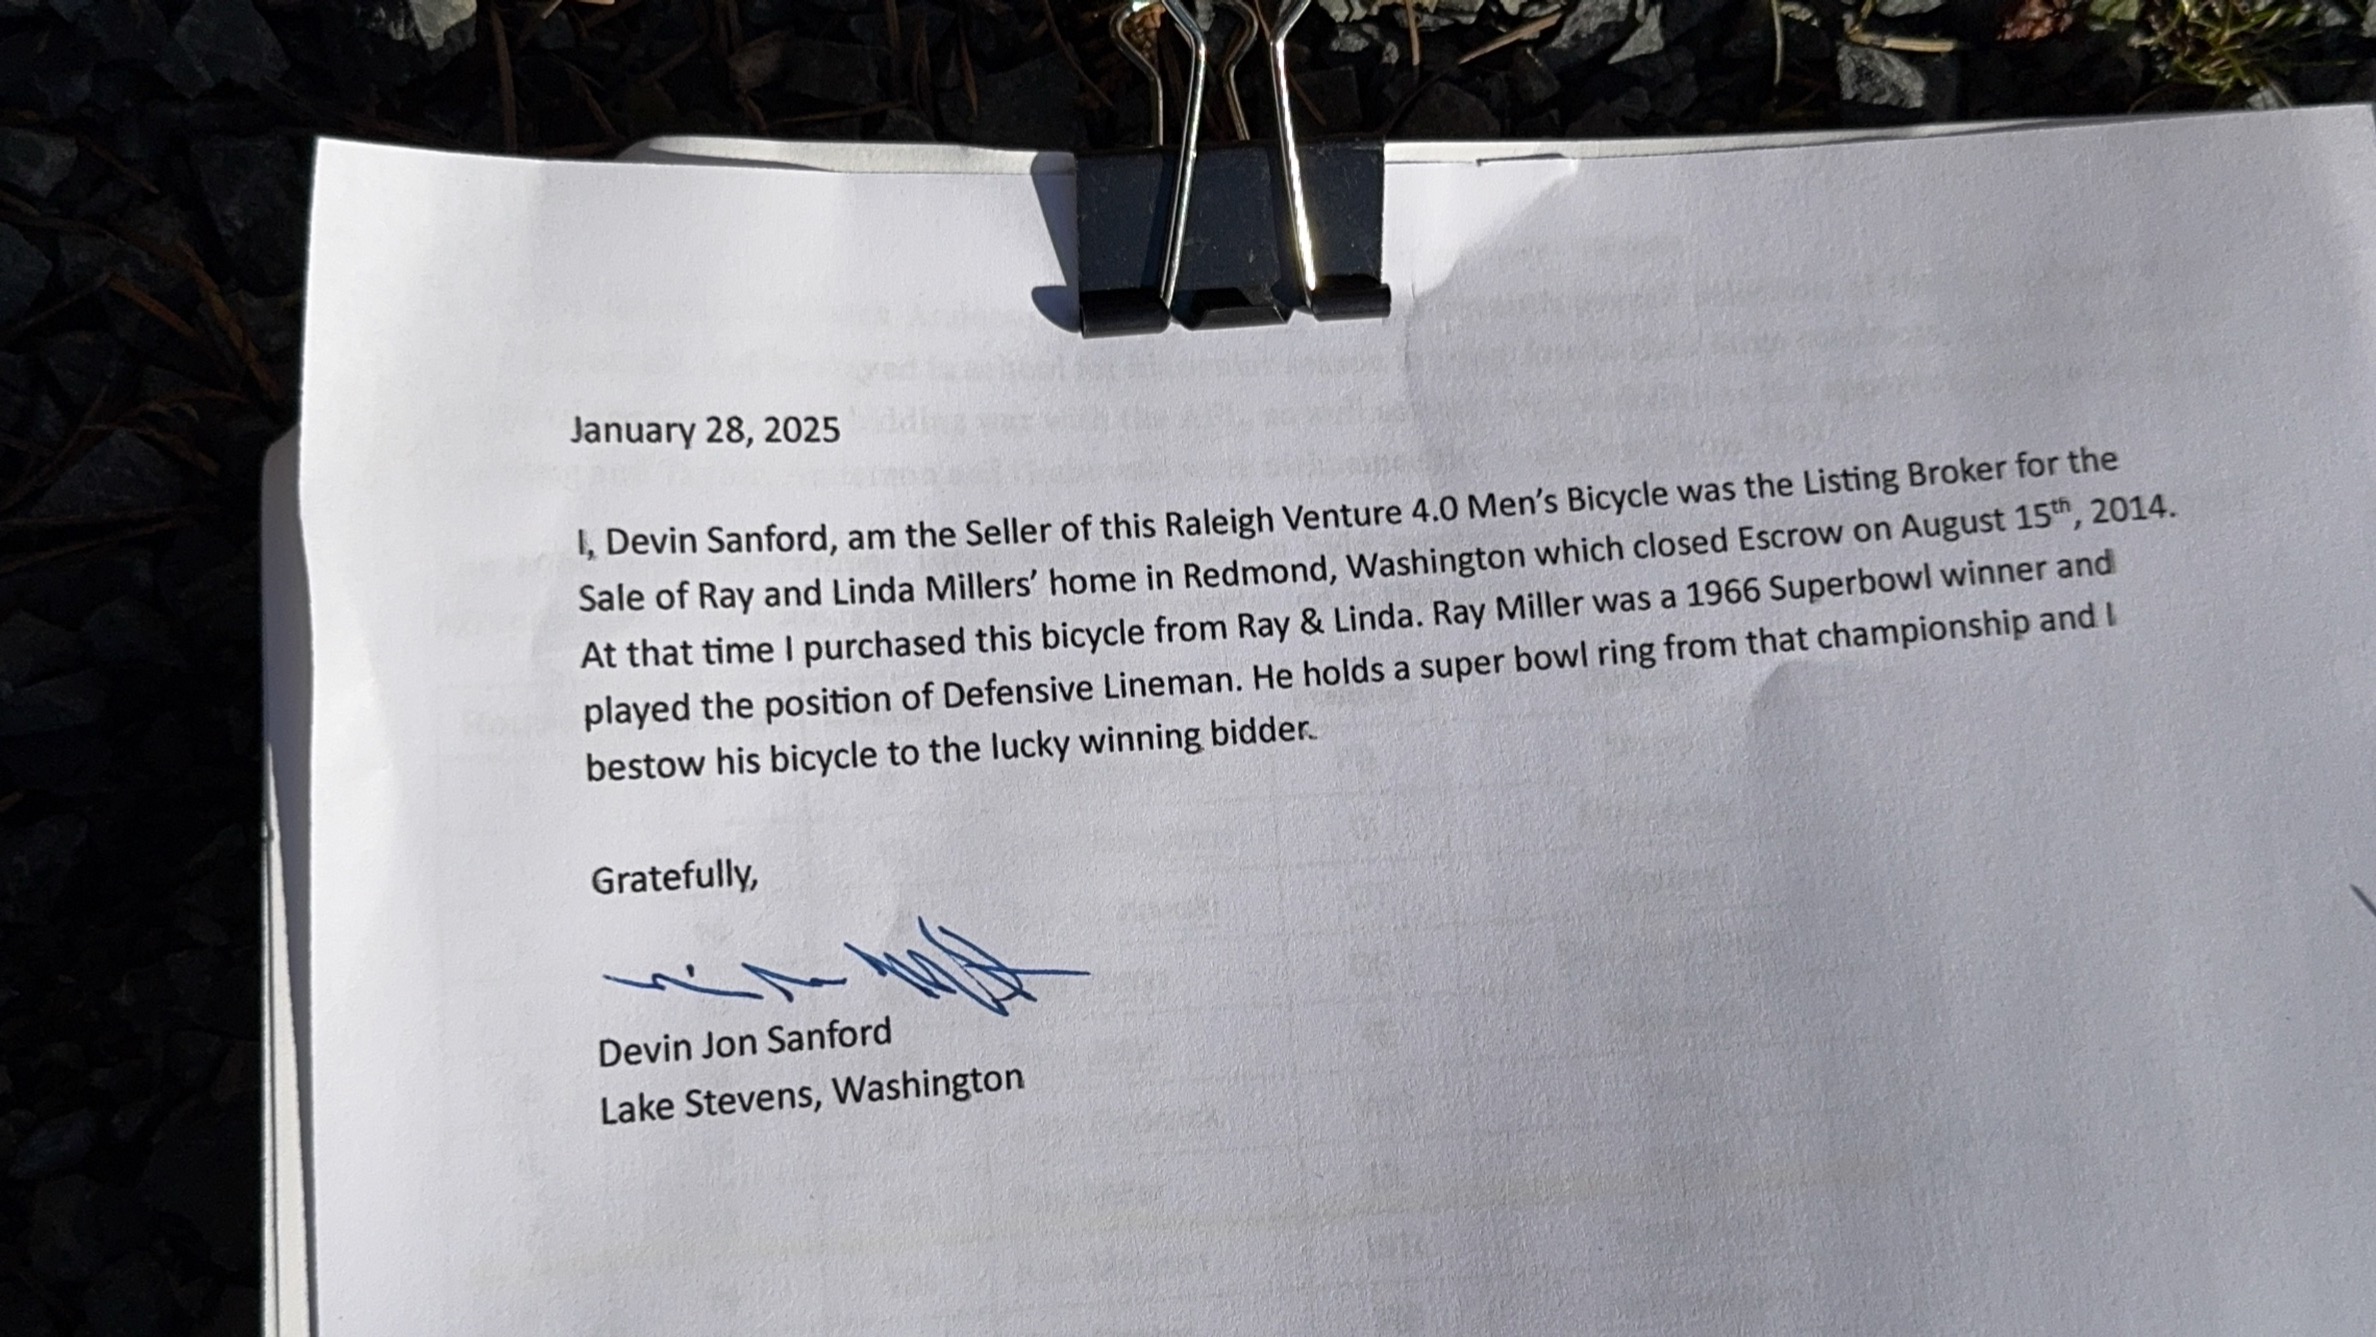 January 28, 2025
I, Devin Sanford, am the Seller of this Raleigh Venture 4.0 Men's Bicycle was the Listing Broker for the
Sale of Ray and Linda Millers' home in Redmond, Washington which closed Escrow on August 15th, 2014.
At that time I purchased this bicycle from Ray & Linda. Ray Miller was a 1966 Superbowl winner and
played the position of Defensive Lineman. He holds a super bowl ring from that championship and I
bestow his bicycle to the lucky winning bidder.
Gratefully,
Devin Jon Sanford
Lake Stevens, Washington